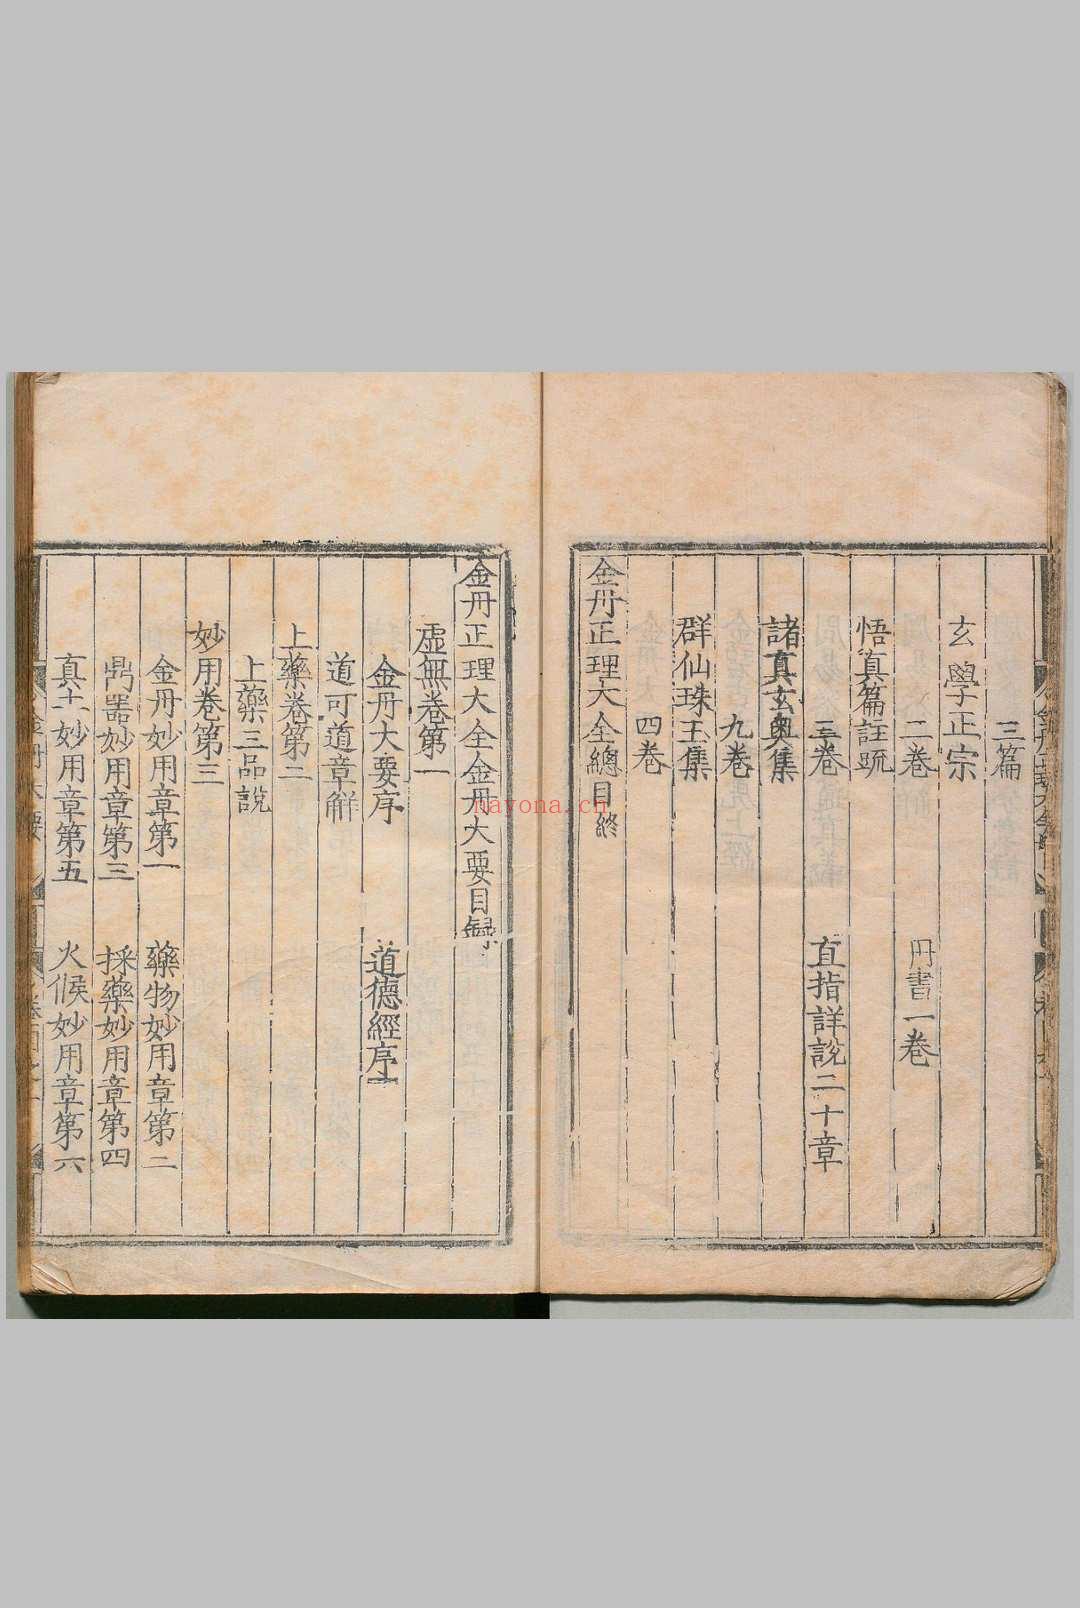 三篇
玄學正宗
二卷 丹書一卷
悟真篇註疏
三卷 直指詳說二十章
諸真玄奧集
九卷
群仙珠玉集
四卷
金丹正理大全總目終
金丹正理大全金丹大要目録
虛無卷第一
金丹大要序 道德經序
道可道章解
上藥卷第二
上藥三品說
妙用卷第三
金丹妙用章第一 藥物妙用章第二
鼎器妙用章第三 採藥妙用章第四
真土妙用章第五 火候妙用章第六
nayona.cn